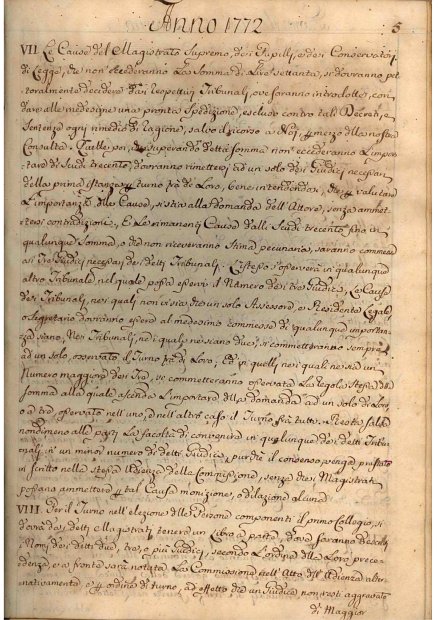 Anno 1772
5
VII. Le Cause del Magistrato Supremo, dei Pupilli, e dei Conservatori
di Legge, che non eccederanno La Somma di Lire settanta, si dovranno pet
toralmente decidere dai respettivi Tribunali, ove saranno introdotte, con
dare alle medesime una pronta spedizione, escluso contro tali Decreti, e
Sentenze ogni rimedio di ragione, salvo il ricorso a Noi, per mezzo della nostra
Consulta. Quelle poi, che superando detta somma non eccederanno L'impor
tare di Scudi trecento, dovranno rimettersi ad un solo dei Giudici necessari
della prima istanza per turno fra di Loro, bene inteso
L'importanza delle Cause, si stia alla domanda dell'Attore, senza ammet
tersi contradizioni, E Le rimanenti Cause dalli Scudi trecento fino in
qualunque Somma, o che non riceveranno Stima pecuniaria, saranno commesse
ai Tre Giudici necessari dei detti Tribunali, L'istesso s'osserverà in qualunque
altro Tribunale nel quale possa esservi il Numero dei tre Giudici, Le Cause
dei Tribunali, nei quali non vi sia, che un solo Assessore, o Residente Legale,
o Segretario dovranno essere al medesimo commesse di qualunque importan
za siano, Nei Tribunali, nei quali ne siano due, si commetteranno sempre
ad un solo, osservato il Turno fra di Loro, Ed in quelli nei quali ne sia un
Numero maggiore dei Tre, si commetteranno osservata La regola stessa della
somma alla quale ascenda L'importare della domanda ad un solo di Loro,
o a tre, osservato nell'uno, e nell'altro caso il Turno fra tutti. Resta salva
nondimeno alle parti La facoltà di convenire in qualunque dei detti Tribu
nali in un minor numero di detti Giudici, purchè il consenso venga prestato
in scritto nella stessa Udienza della Commissione, senza che i Magistrati
possano ammettere per tal Causa monizione, o dilazione alcuna
VIII. Per il Turno nell'elezione delle Persone componenti il primo Collegio, si
dovrà dai detti Magistrati tenere un Libro a parte, dove saranno descritti
i Nomi dei detti due, tre, o più Giudici, secondo L'ordine della Loro prece
denza, e a fronte sarà notata La Commissione nell'Atto dell'Udienza alter
nativamente, e per ordine di turno, ad effetto che un Giudice non resti aggravato
di Maggior